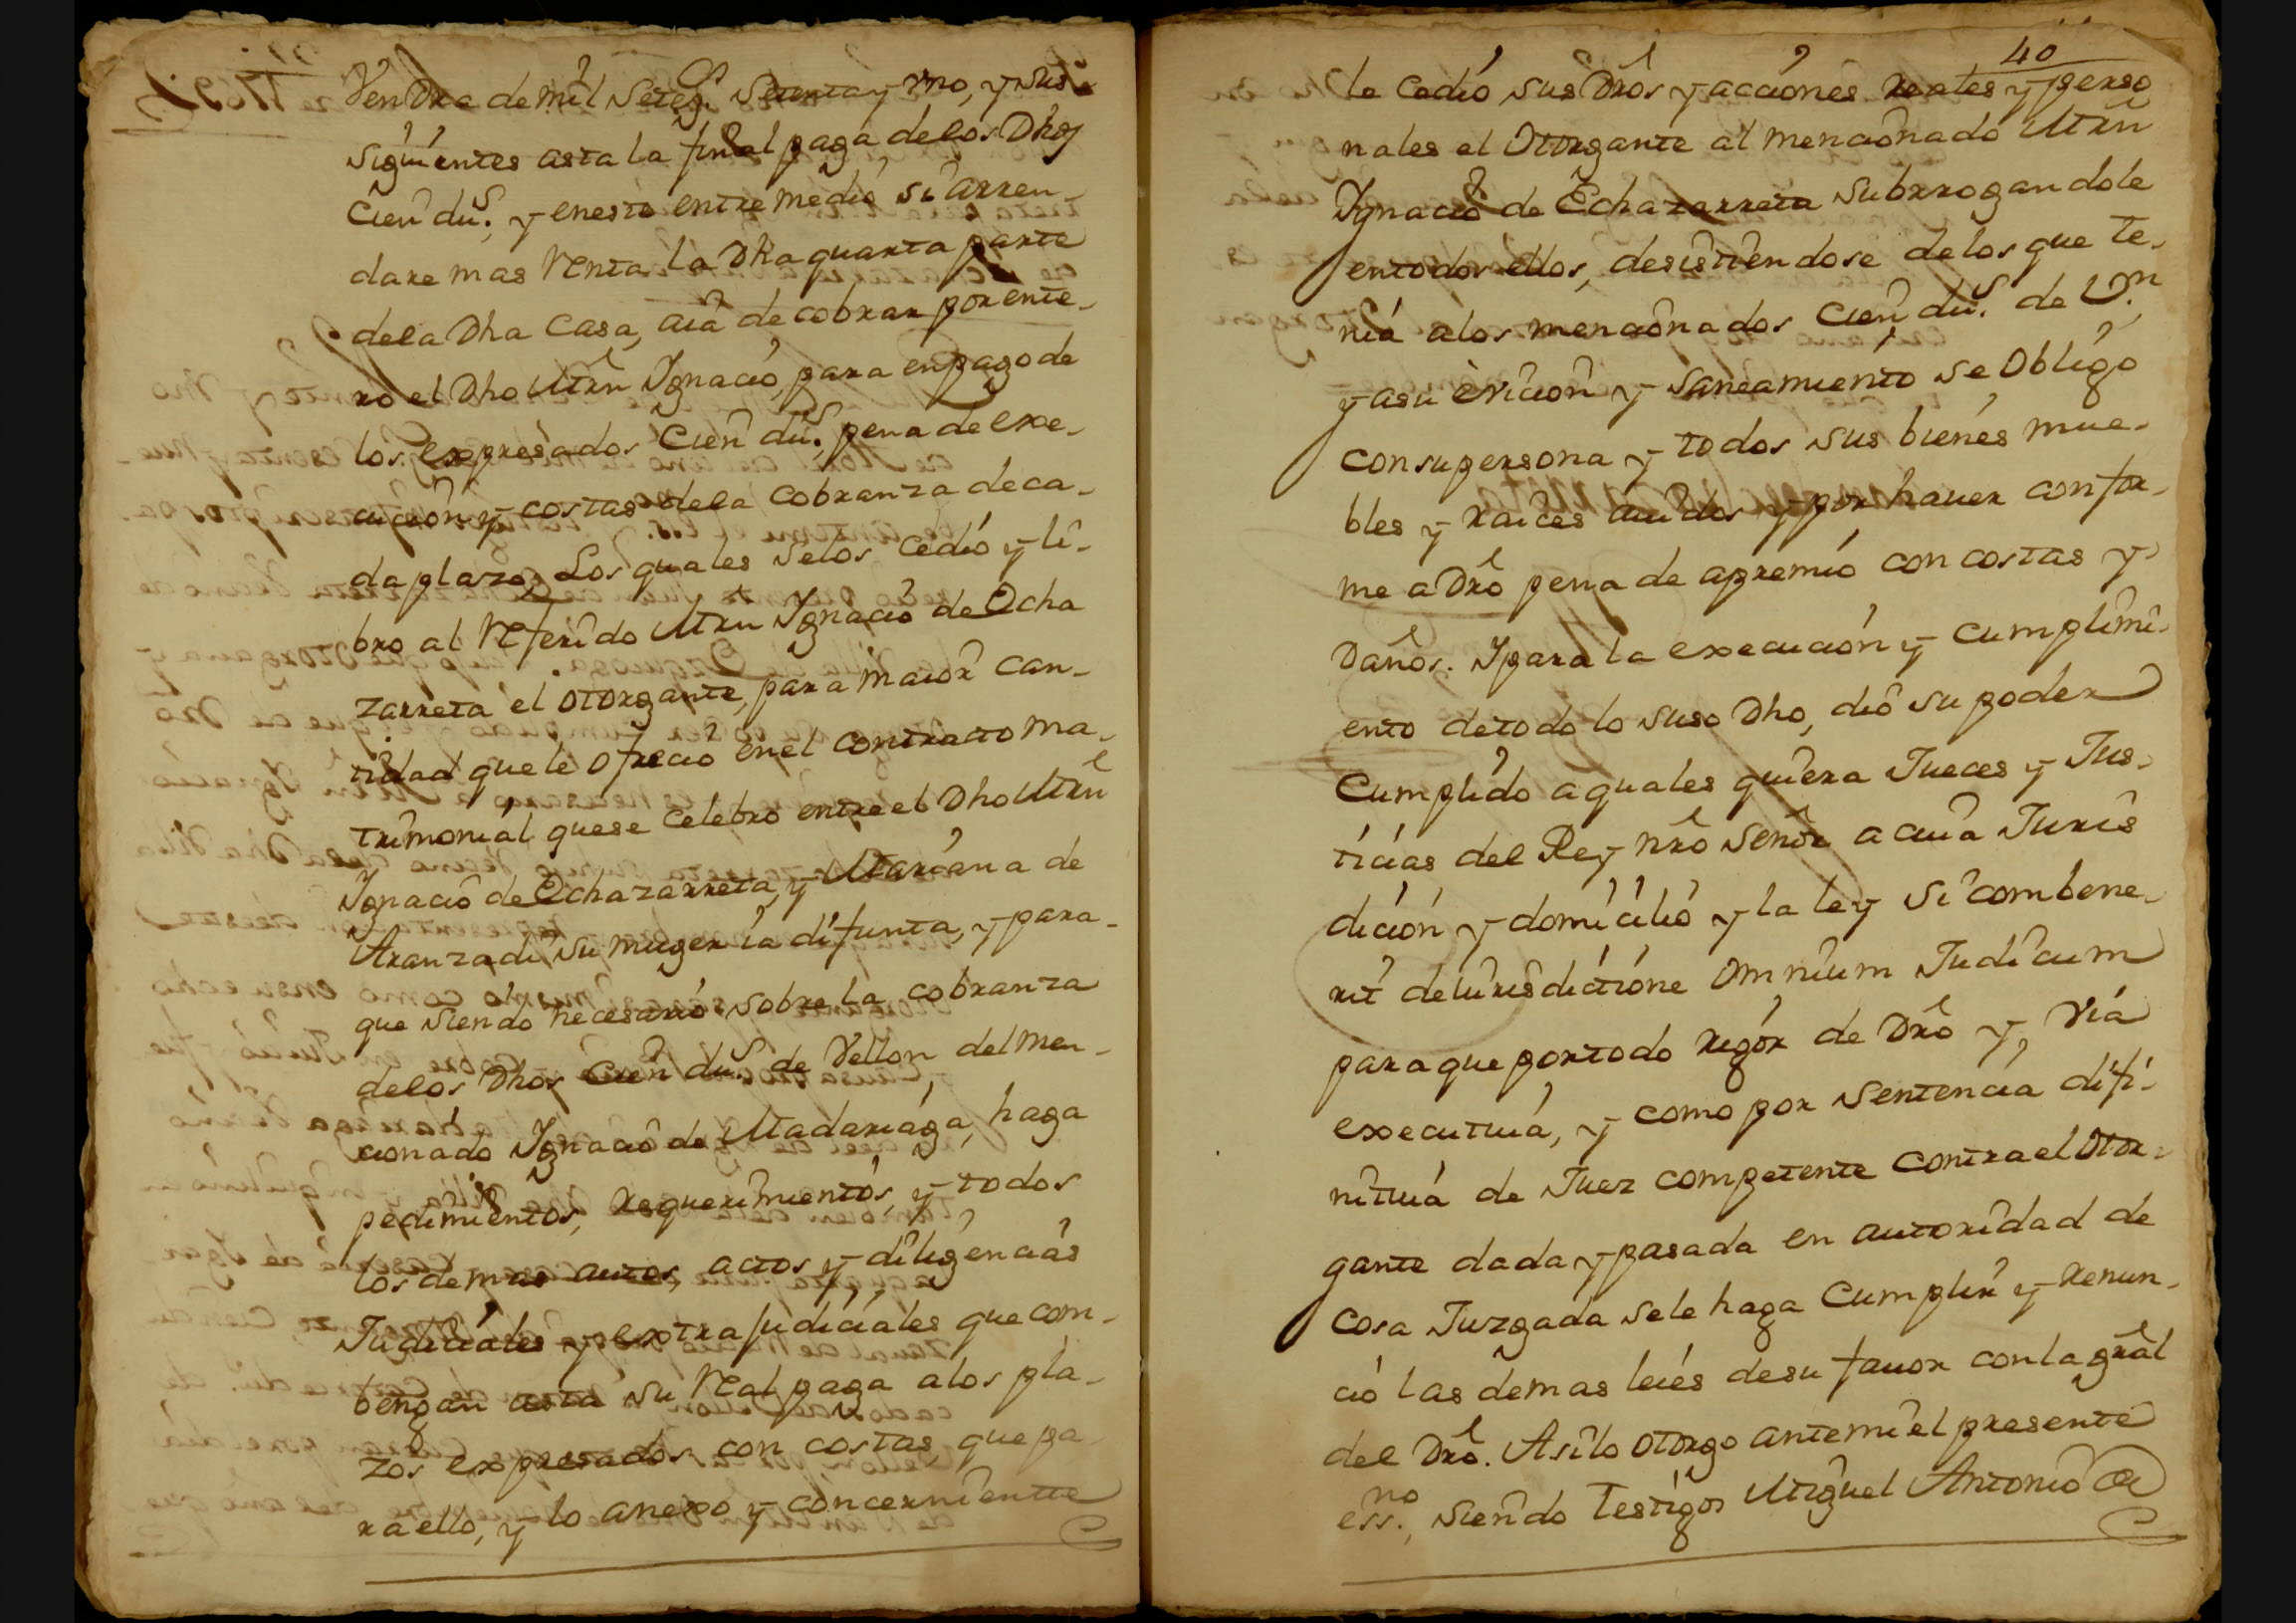 Vendra de mil setez.os setenta y vno, y sus
siguientes asta la final paga delos Dhos
Cien du.s, y enesto entre medio si arren-
dare mas Renta la Dha quarta parte
dela Dha Casa, aia de cobrar por ente-
ro el Dho Mrñ Ignacio, para en pago de
los expresados Cien du.s, pena de exe-
cucion y costas dela cobranza deca-
da plazo. Los quales selos cedio y li-
bro al Referido Mrñ Ignacio de Ocha
zarreta el otorgante, para maior can-
tidad que le ofrecio enel contracto ma-
trimonial que se celebro entre el Dho Mrñ
Ignacio de Ochazarreta, y Mariana de
Aranzadi su muger ia difunta, y para-
que siendo necesario sobre la cobranza
delos Dhos Cien du.s de Vellon, del men-
cionado Ignacio de Madariaga, haga
pedimientos, requerimientos, y todos
los demas autos, actos y diligencias
Judiciales y extrajudiciales que com-
bengan asta su Real paga alos pla-
zos expresados con costas que pa
ra ello, y lo anexo y concerniente
40
le cedio sus Drõs y acciones reales y perso
nales el Otorgante al mencionado Mrñ
Ignacio de Echazarreta subrrogandole
entodos ellos, desistiendose delos que te-
nia alos mencionados Cien du.s de V.n
y asu evicion y saneamiento se Obligo
con su persona y todos sus bienes mue-
bles y raices auidos y por hauer confor-
me a Drõ pena de apremio con costas y
Daños. Y para la execucion y cumplimi-
ento detodo lo suso Dho, dio su poder
Cumplido a quales quiera Jueces y Jus-
ticias del Rey nrõ Señor a cuia Juris
dicion y domicilio y la ley si combene-
rit de iurisdictione omnium Judicum
para que por todo rigor de Drõ y, Via
executiua, y como por sentencia difi-
nitiua de Juez competente contra el Otor-
gante dada y pasada en autoridad de
cosa Juzgada sele haga Cumplir y renun-
cio las demas leies desu fauor con la grãl
del Drõ. Asi lo otorgo antemi el presente
ess.no, siendo Testigos Miguel Antonio de